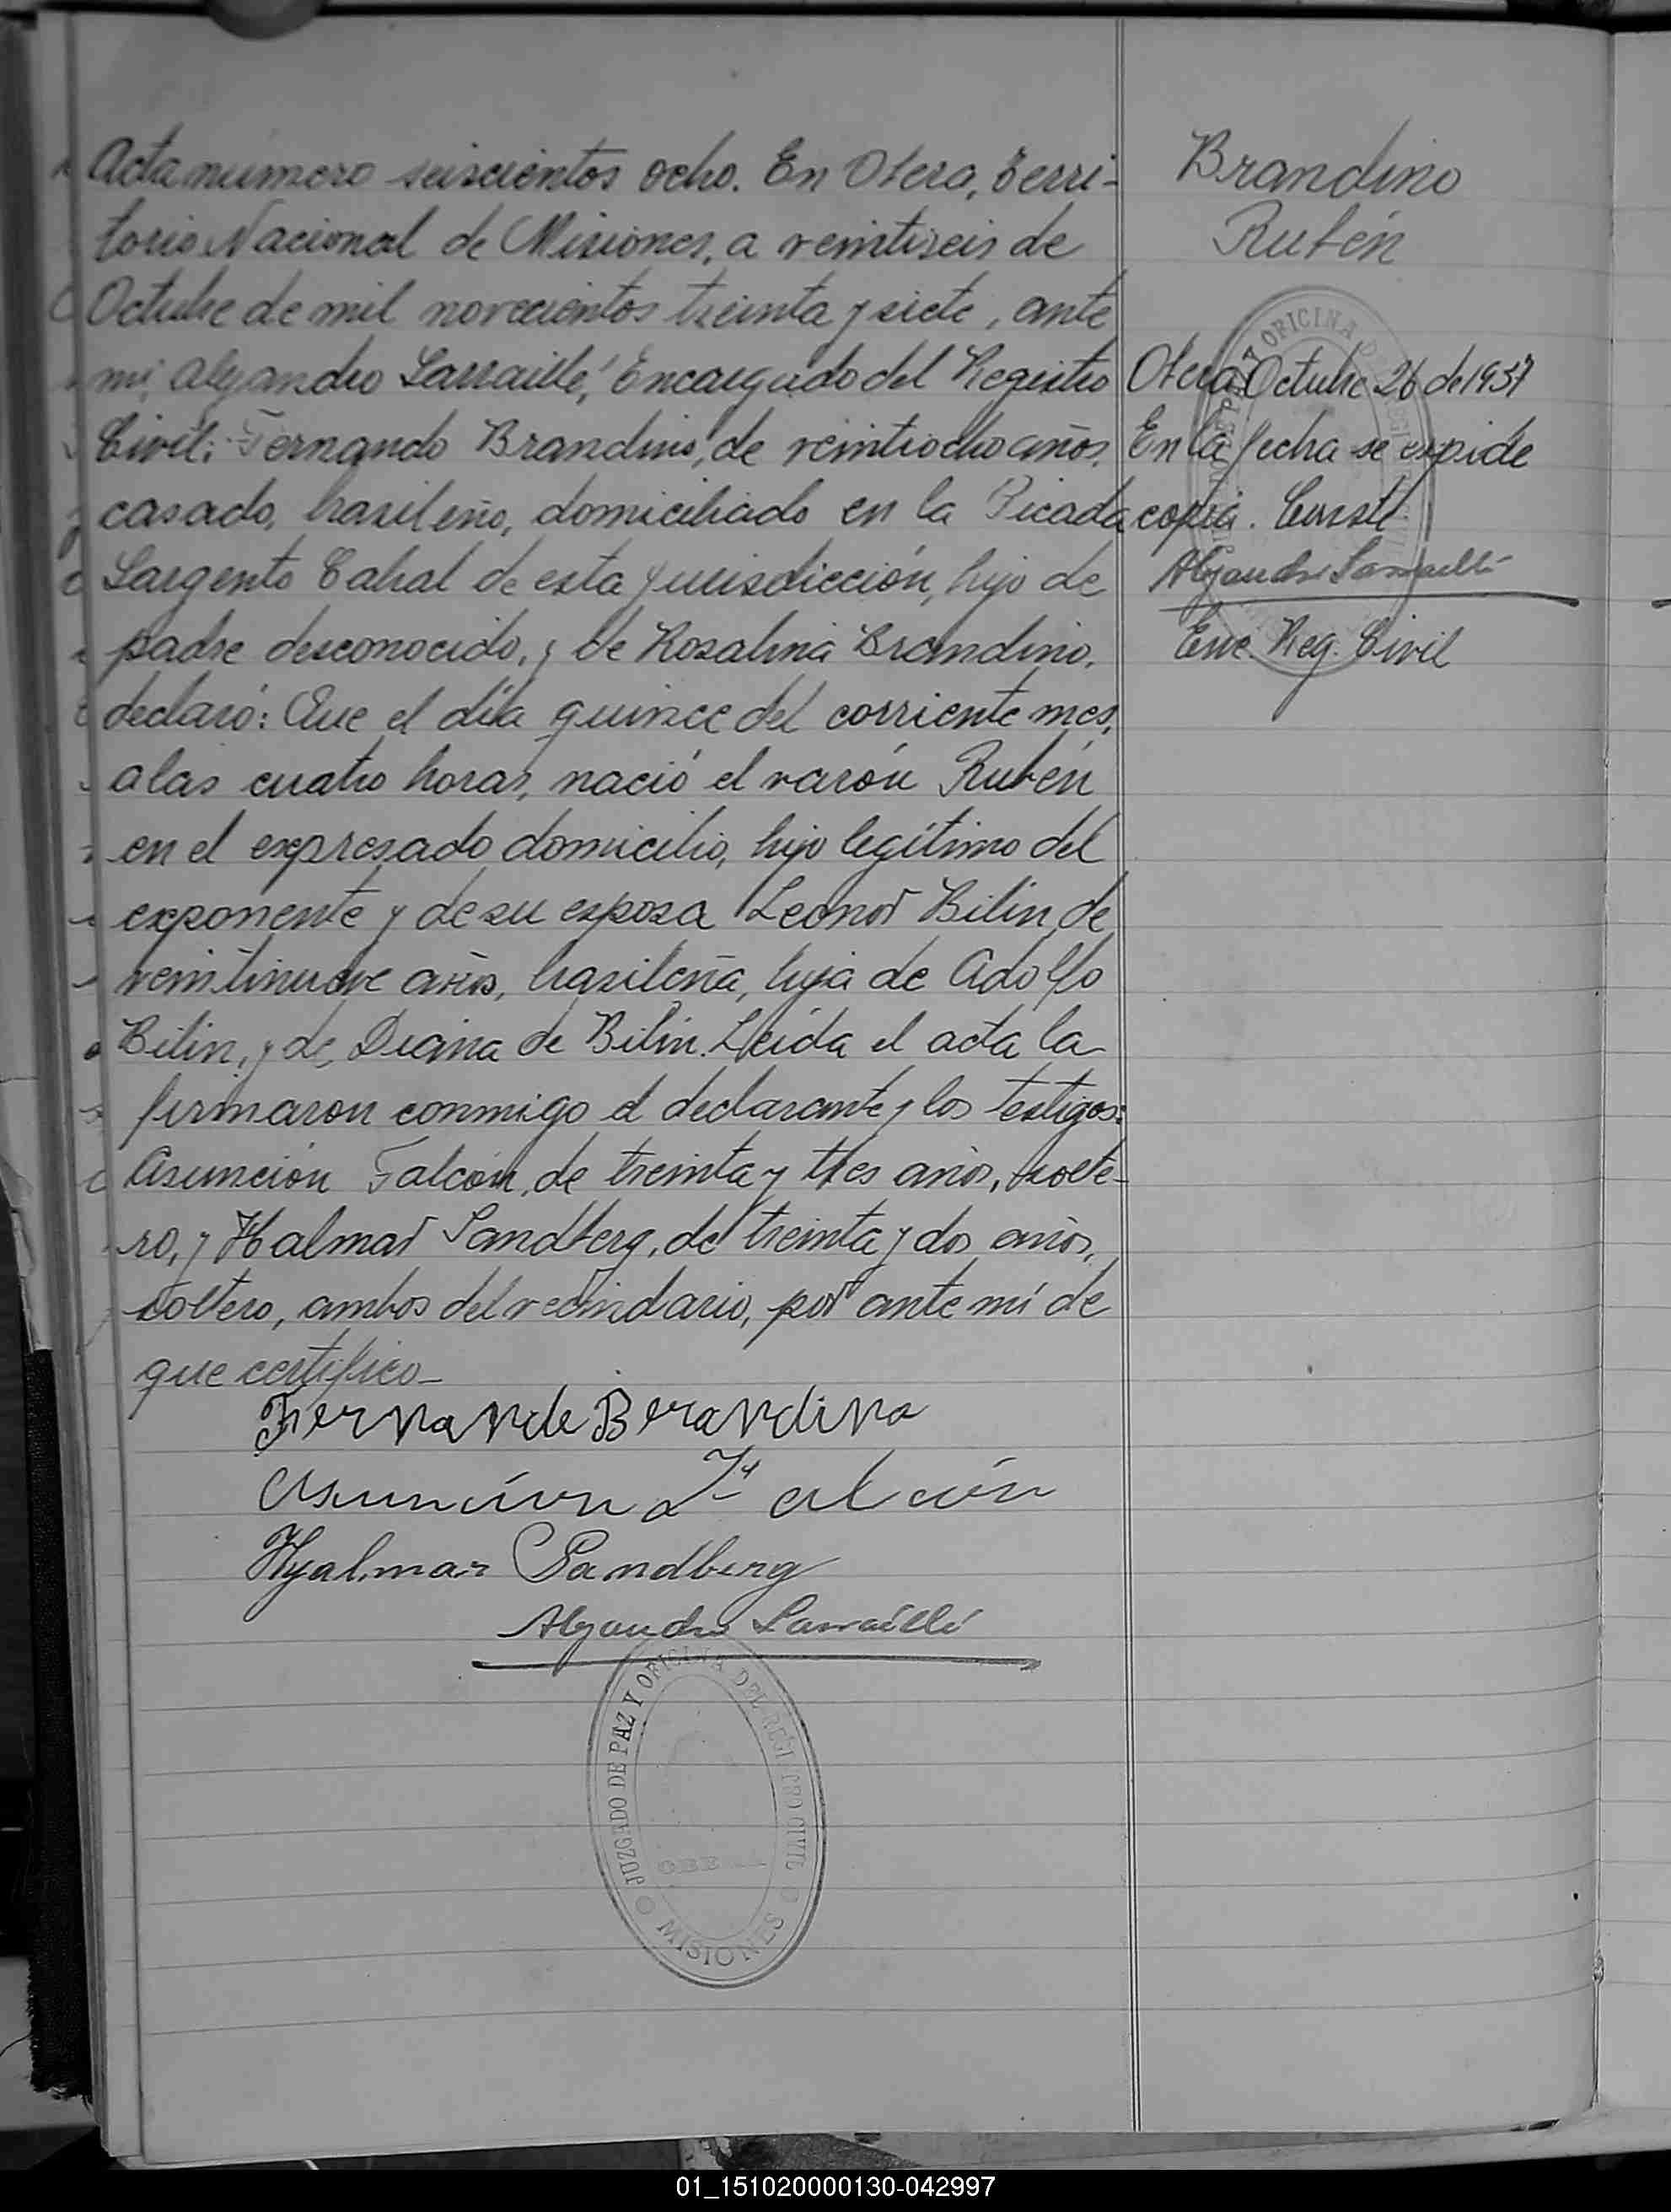 Acta número seiscientos ocho. En Obera, Terri-
torio Nacional de Misiones, a veintiseis de
Octubre de mil novecientos treinta y siete, ante
mi, Alejandro Larraillé, Encargado del Registro
Civil: Fernando Brandino, de veintiocho años,
casado, brasileño, domiciliado en la Picada
Sargento Cabral de esta jurisdicción, hijo de
padre desconocido, y de Rosalina Brandino,
declaró: Que el día quince del corriente mes,
a las cuatro horas, nació el varón Rubén
en el expresado domicilio, hijo legítimo del
exponente y de su esposa Leonor Bilin, de
veintinueve años, brasileña, hija de Adolfo
Bilin, y de Diana de Bilin. Leída el acta la
firmaron conmigo el declarante y los testigos:
Asunción Falcón, de treinta y tres años, solte-
ro, y Halmar Sandberg, de treinta y dos años,
soltero, ambos del vecindario, por ante mí de
que certifico_
Fernande Brandino
Asuncion Falcón
Hyalmar Sandberg
Alejandro Larraillé
JUZGADO DE PAZ Y OFICINA DEL REGISTRO CIVIL
OBERA
MISIONES
Brandino
Rubén
Obera Octubre 26 de 1937
En la fecha se expide
copia. Const
Alejandro Larraillé
Enc. Reg. Civil
01_151020000130-042997